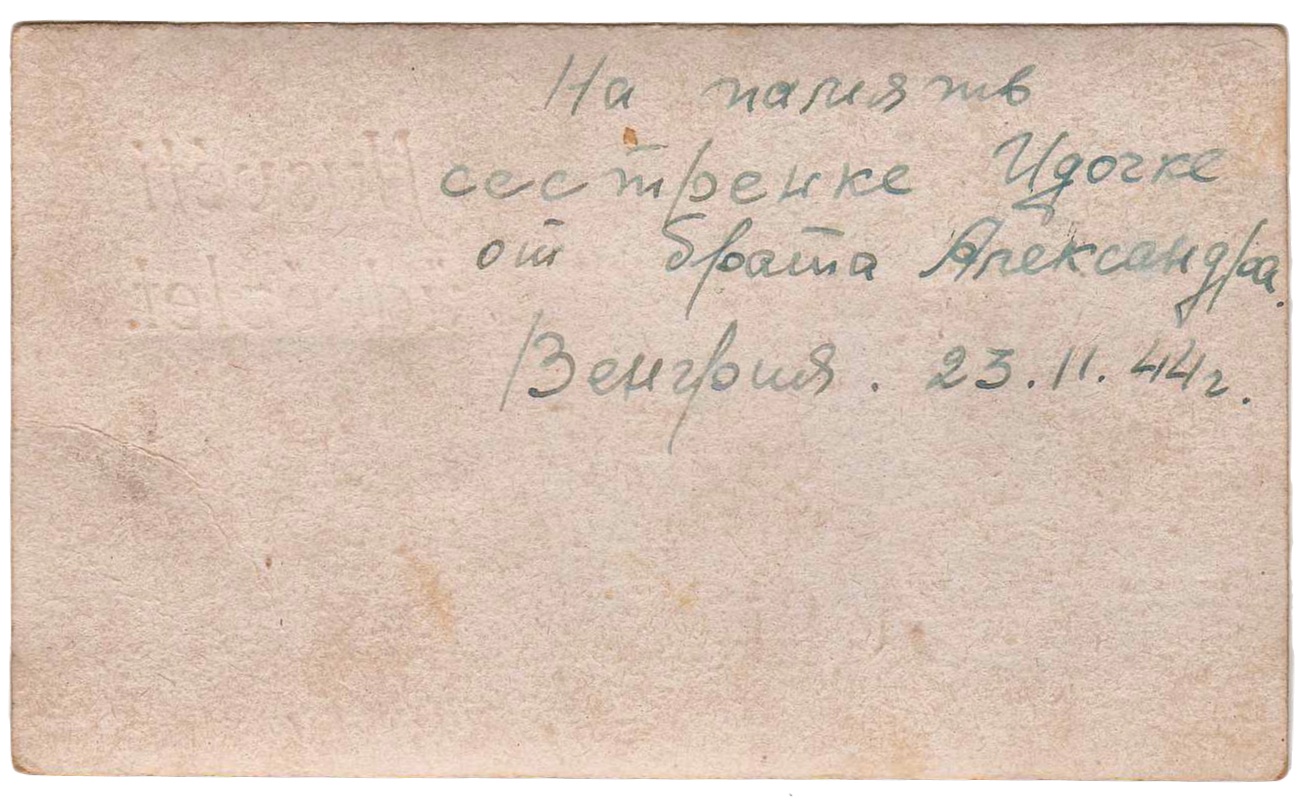 На память
сестренке Идочке
от брата Александра.
Венгрия. 23.11.44г.